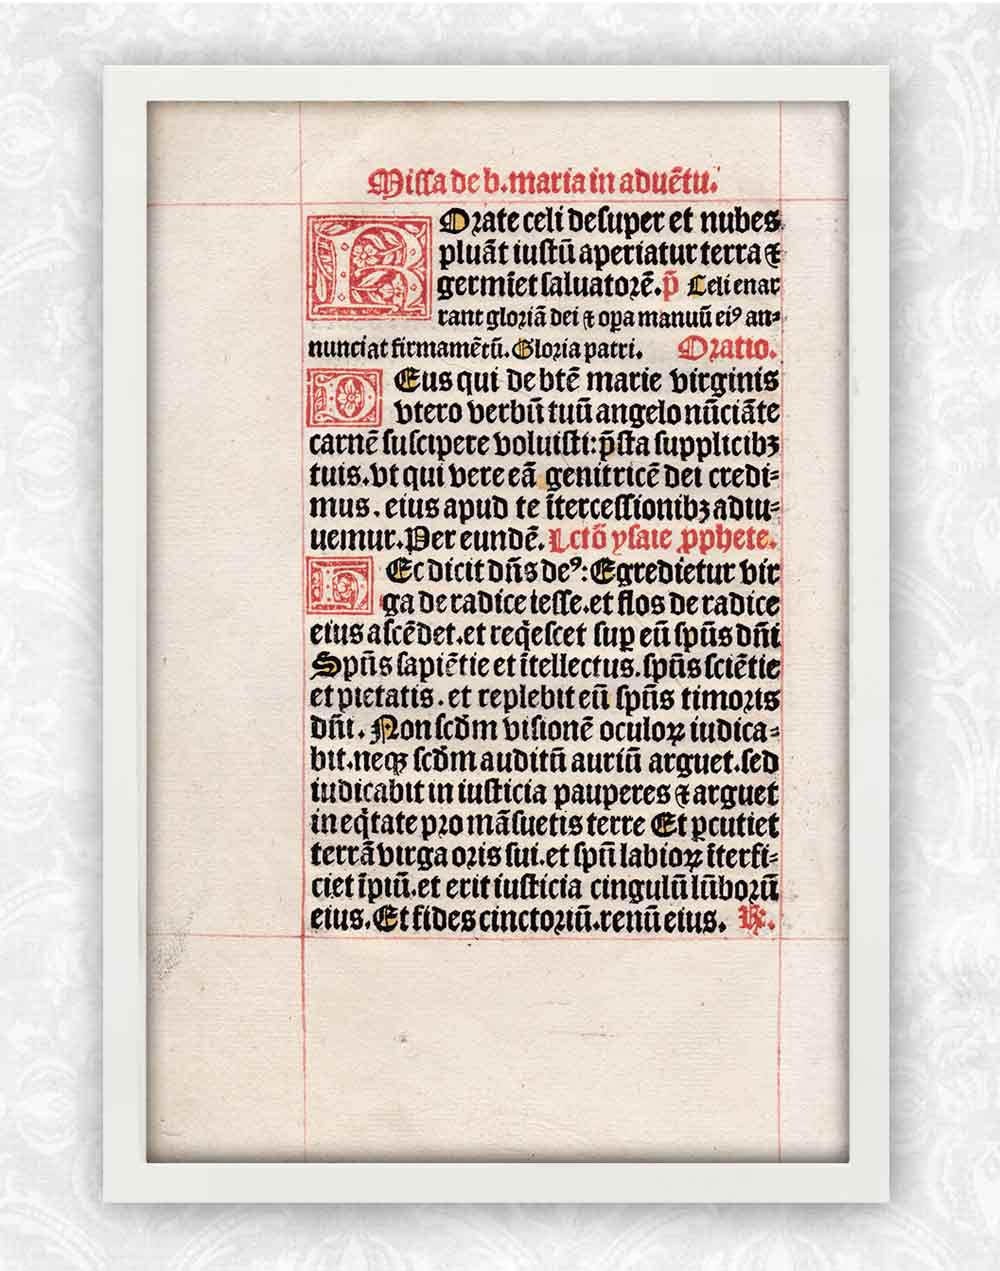 Missa de b. maria in aduẽtu.
ROrate celi desuper et nubes
pluãt iustũ aperiatur terra ⁊
germiẽt saluatorẽ. p̃ Celi enar
rant gloriã dei ⁊ oꝑa manuũ eiꝰ an-
nunciat firmamẽtũ. Gloria patri. Oratio.
DEus qui de btẽ marie virginis
vtero verbũ tuũ angelo nũciãte
carnẽ suscipere voluisti: p̃sta supplicibꝫ
tuis. vt qui vere eã genitricẽ dei credi-
mus. eius apud te ĩtercessionibꝫ adiu-
uemur. Per eundẽ. Lctõ ysaie ꝓphete.
HEc dicit dñs deꝰ: Egredietur vir
ga de radice iesse. et flos de radice
eius ascẽdet. et req̃escet suꝑ eũ spũs dñi
Spũs sapiẽtie et ĩtellectus. spũs sciẽtie
et pietatis. et replebit eũ spũs timoris
dñi. Non scđm visionẽ oculoꝝ iudica-
bit. neqꝫ scđm auditũ auriũ arguet. sed
iudicabit in iusticia pauperes ⁊ arguet
in eq̃tate pro mãsuetis terre Et ꝑcutiet
terrã virga oris sui. et spũ labioꝝ ĩterfi-
ciet ĩpiũ. et erit iusticia cingulũ lũborũ
eius. Et fides cinctoriũ. renũ eius. ℞.